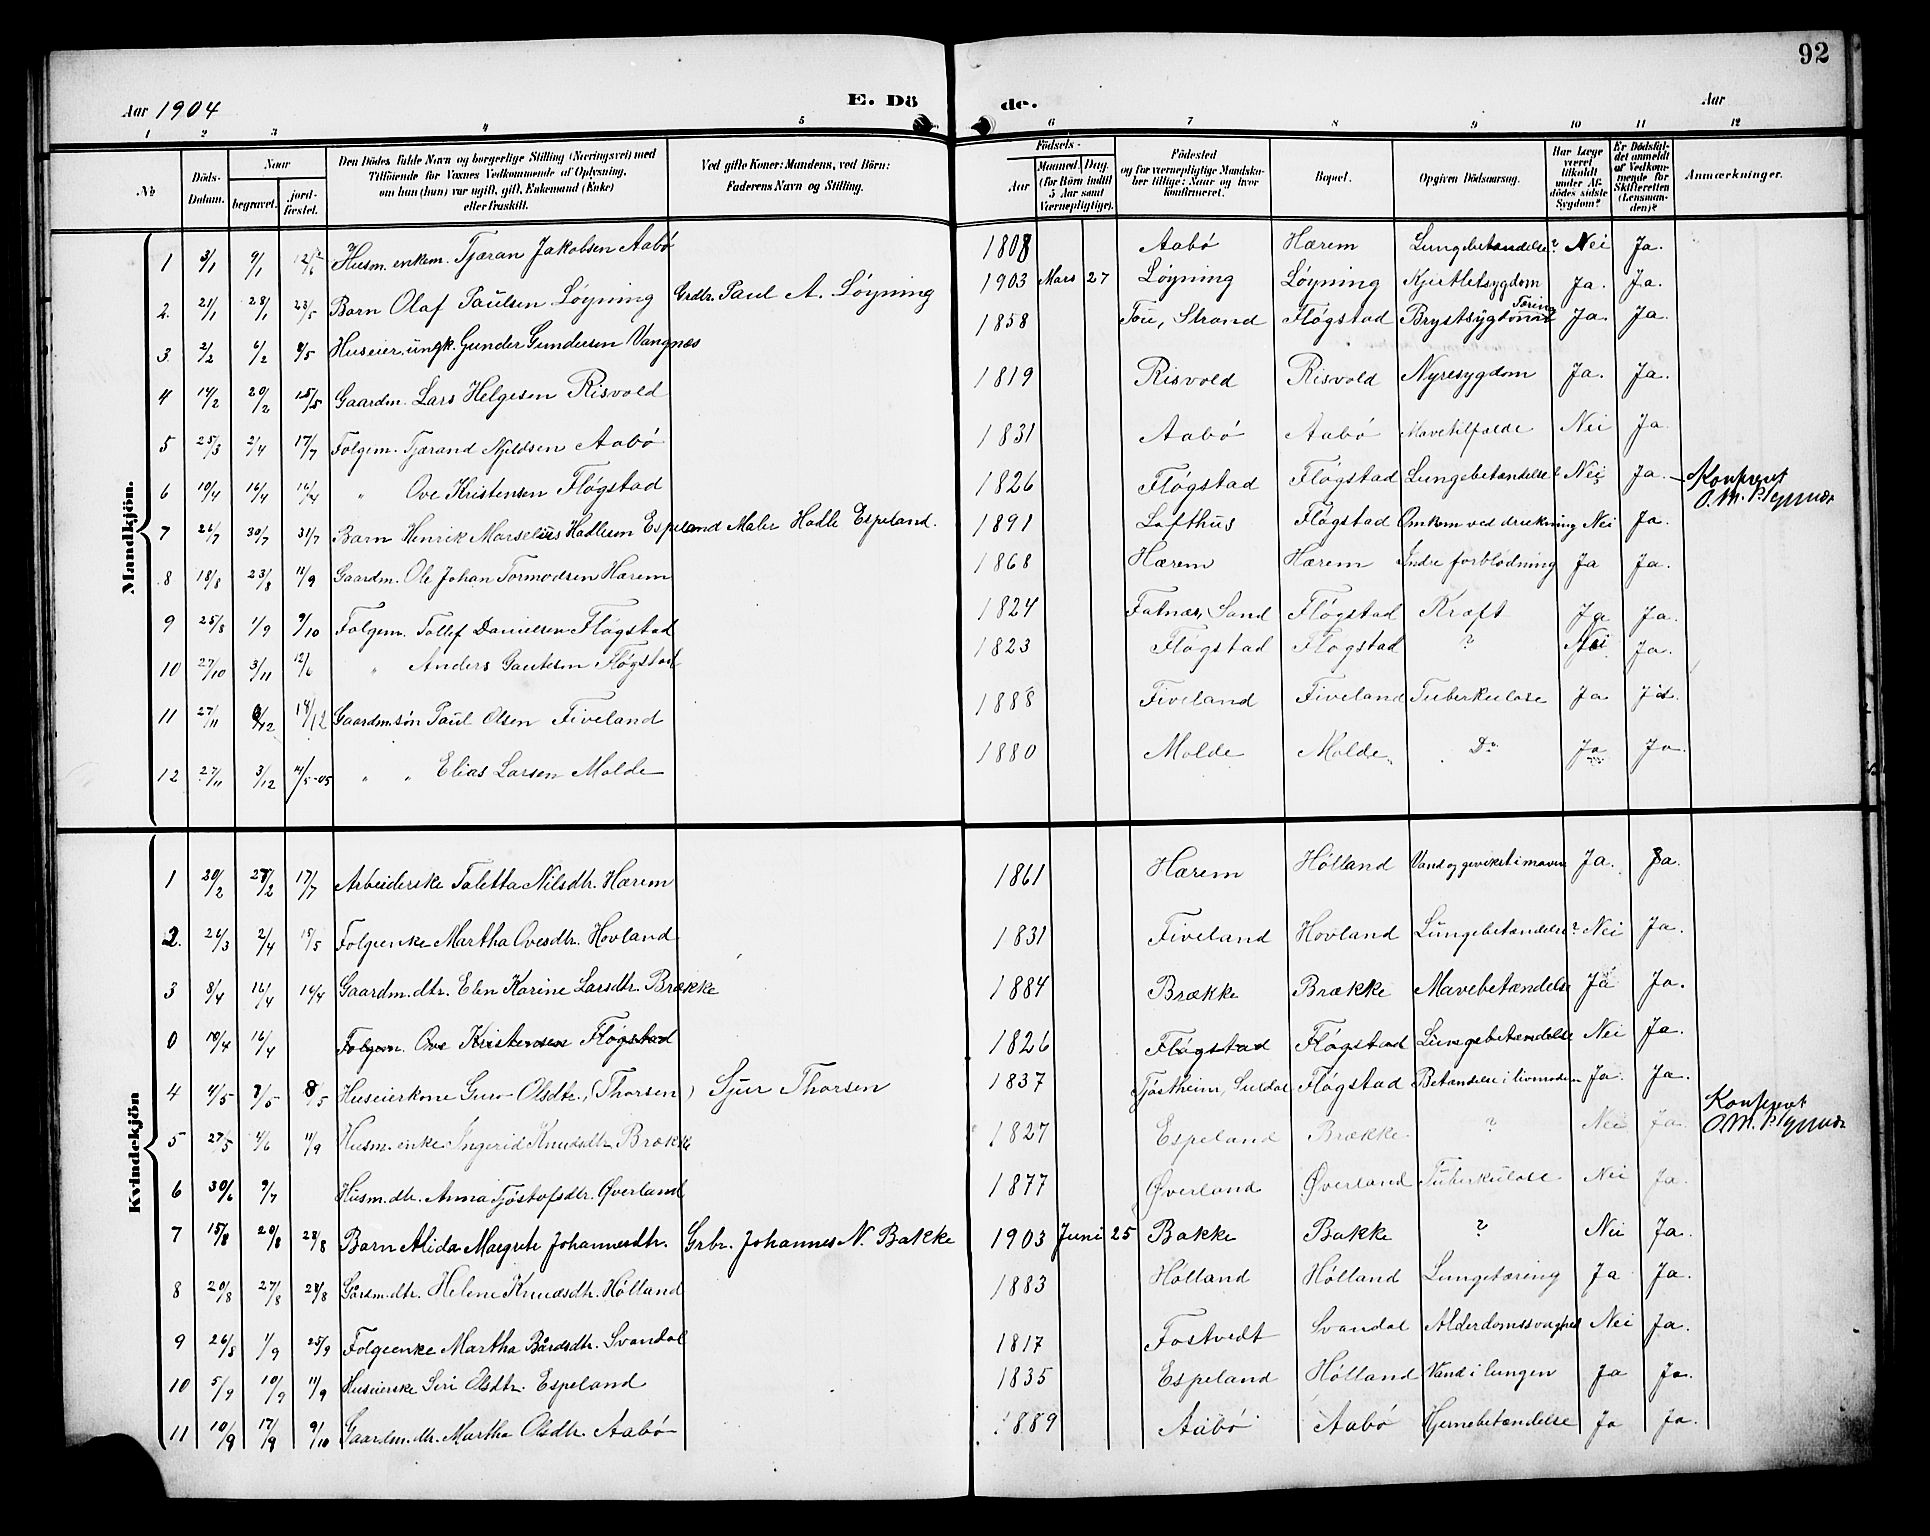 92
Aar 1904 E. Dö de. Aar
1 2 3 4 5 6 7 8 9 10 11 12
No
Döds-Datum.
Naar
begravet.
jordfæstet.
Den Dödes fulde Navn og borgerlige Stilling (Næringsvei) med
Tilföiende for Voxnes Vedkommende af Oplysning,
om han (hun) var ugift, gift, Enkemand (Enke)
eller fraskilt.
Ved gifte Koner: Mandens, ved Börn:
Faderens Navn og Stilling.
Födsels-
Aar
Maaned. Dag.
(for Börn indtil
5 Aar samt
Værnepligtige).
Födested
og for værnepligtige Mandskaber
tillige: Naar og hvor
konfirmeret.
Bopæl.
Opgiven Dödsaarsag.
Har Læge
været
tilkaldt
under Afdödes
sidste
Sygdom?
Er Dödsfaldet
anmeldt
af Vedkommende
for
Skifteretten
(Lensmanden)?
Anmærkninger.
Mandkjön.
1 3/1 9/1 12/6 Husm. enkem. Tjæran Jakobsen Aabö 1808 Aabö Hærem Lungebetændelse? Nei Ja.
2. 21/1 28/1 23/5 Barn Olaf Paulsen Löyning Grdbr. Paul A. Löyning 1903 Mars 27 Löyning Löyning Kjertletsygdom Ja. Ja.
3 2/2 6/2 8/5 Huseier. ungk. Gunder Gundersen Vangnæs 1858 Tou, Strand Flögstad Brystsygdom Tæring Ja. Ja.
4 14/2 20/2 15/5 Gaardm. Lars Helgesen Risvold 1819 Risvold Risvold Nyresygdom Ja. Ja.
5 25/3 2/4 17/7 Folgem. Tjærand Njeldsen Aabö 1831 Aabö Aabö Mavetilfælde Nei Ja
6 10/4 16/4 16/4 " Ove Kristensen Flögstad 1826 Flögstad Flögstad Lungebetændelse? Nei Ja. Konfereret
7 26/7 30/7 31/7 Barn Henrik Marselius Hadlesen Espeland Maler Hadle Espeland. 1891 Lofthus Flögstad Omkom ved drukning Nei Ja.
8 18/8 23/8 11/9 Gaardm. Ole Johan Tormodsen Hærem 1868 Hærem Hærem Indre forblödning Ja Ja.
9 25/8 1/9 9/10 Folgem. Tollef Danielsen Flögstad 1824 Fatnæs, Sand Flögstad Kræft Ja Ja.
10 27/10 3/11 12/6 " Anders Gautesen Flögstad 1823 Flögstad Flögstad ? Nei Ja.
11 27/11 /12 18/12 Gaardm.sön Paul Olsen Fiveland 1888 Fiveland Fiveland Tuberkulose Ja Ja.
12 27/11 3/12 14/5-05 " " Elias Larsen Molde 1880 Molde Molde Do Ja Ja.
Kvindekjön
1 20/2 27/2 17/7 Arbeiderske Taletta Nilsdtr. Hærem 1861 Hærem Hölland Vand og gevækst i maven Ja. Ja.
2. 26/3 2/4 15/5 Folgeenke Martha Ovesdtr. Hovland 1831 Fiveland Hovland Lungebetændelse? Nei Ja.
3 8/4 16/4 16/4 Gaardm. dtr. Elen Karine Larsdtr. Brække 1884 Brække Brække Mavebetændelse Ja Ja.
0 10/4 16/4 Folgem. Ove Kristensen Flögstad 1826 Flögstad Flögstad Lungebetændelse Nei Ja.
4 4/5 7/5 8/5 Huseierkone Guro Olsdtr. (Thorsen) Sjur Thorsen 1837 Tjöstheim, Suldal Flögstad Betændelse i livmoderen Ja. Ja. Konfereret
5 27/5 4/6 11/9 Husm. enke Ingerid Knudsdtr. Brække 1827 Espeland Brække. ? Nei Ja.
6 30/6 9/7 Husm. dtr. Anna Tjöstofsdtr. Øverland 1877 Øverland Øverland Tuberkulose Nei Ja.
7 15/8 20/8 28/8 Barn Alida Margrete Johannesdtr. Grbr. Johannes N. Bakke 1903 Juni 25 Bakke Bakke ? Nei Ja.
8 20/8 27/8 28/8 Gårdm. dtr. Helene Knudsdtr. Hölland 1883 Hölland Hölland Lungetæring Ja Ja.
9 26/8 1/9 25/9 Folgeenke Martha Bårdsdtr. Svandal 1817 Fostvedt Svandal Alderdomssvaghed Nei Ja.
10 5/9 10/9 11/9 Huseierske Siri Olsdtr. Espeland 1835 Espeland Hölland Vand i lungen Ja Ja.
11 10/9 17/9 9/10 Gaardm. dtr. Martha Olsdtr. Aabö 1889 Aabö Aabö Hjernebetændelse Ja Ja.